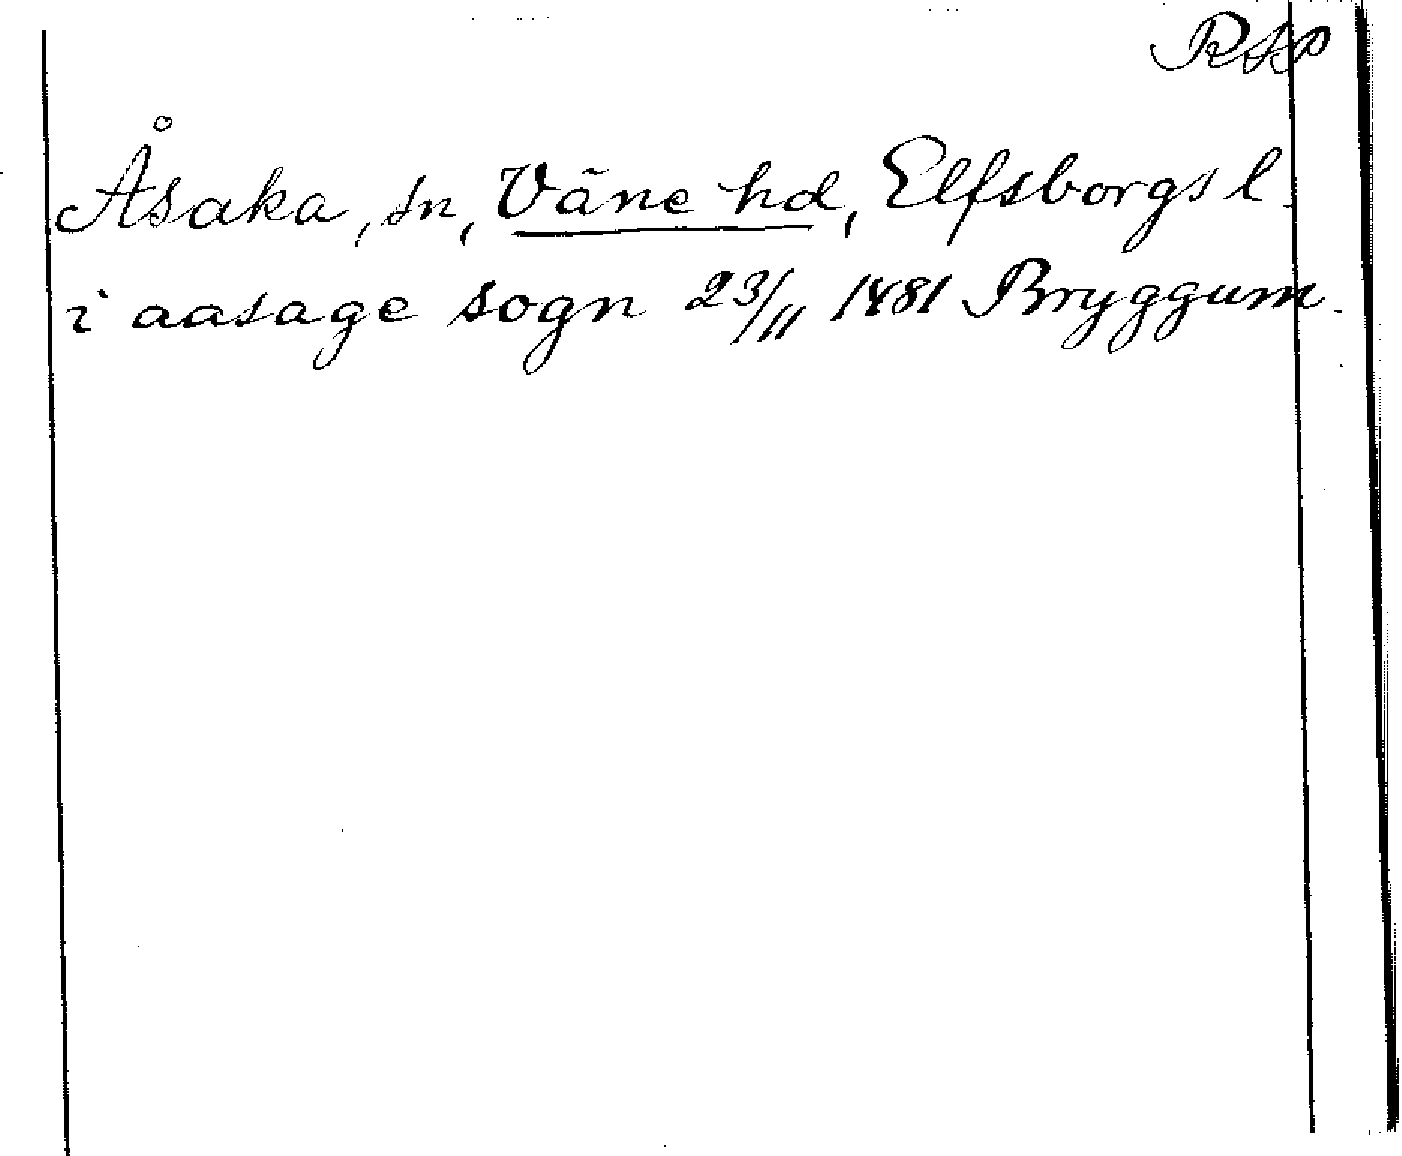 RAP
Åsaka, sn, Väne hd, Elfsborgs l.
i aasage sogn 23/11 1481 Bryggum.